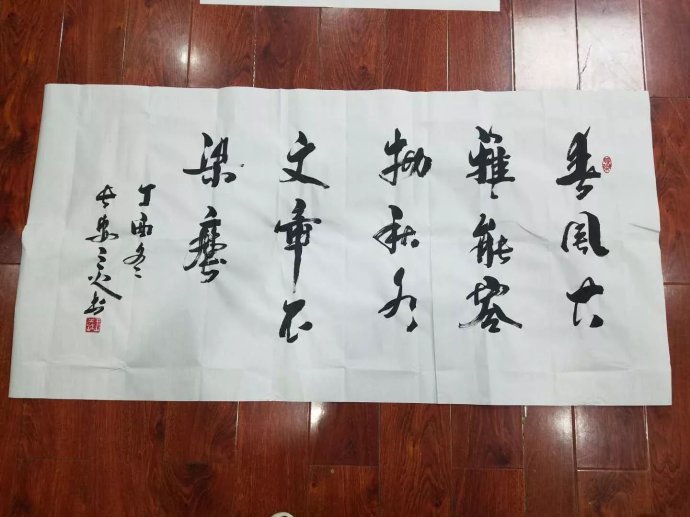 春風大
雅能容
物秋水
文章不
染塵
丁酉冬